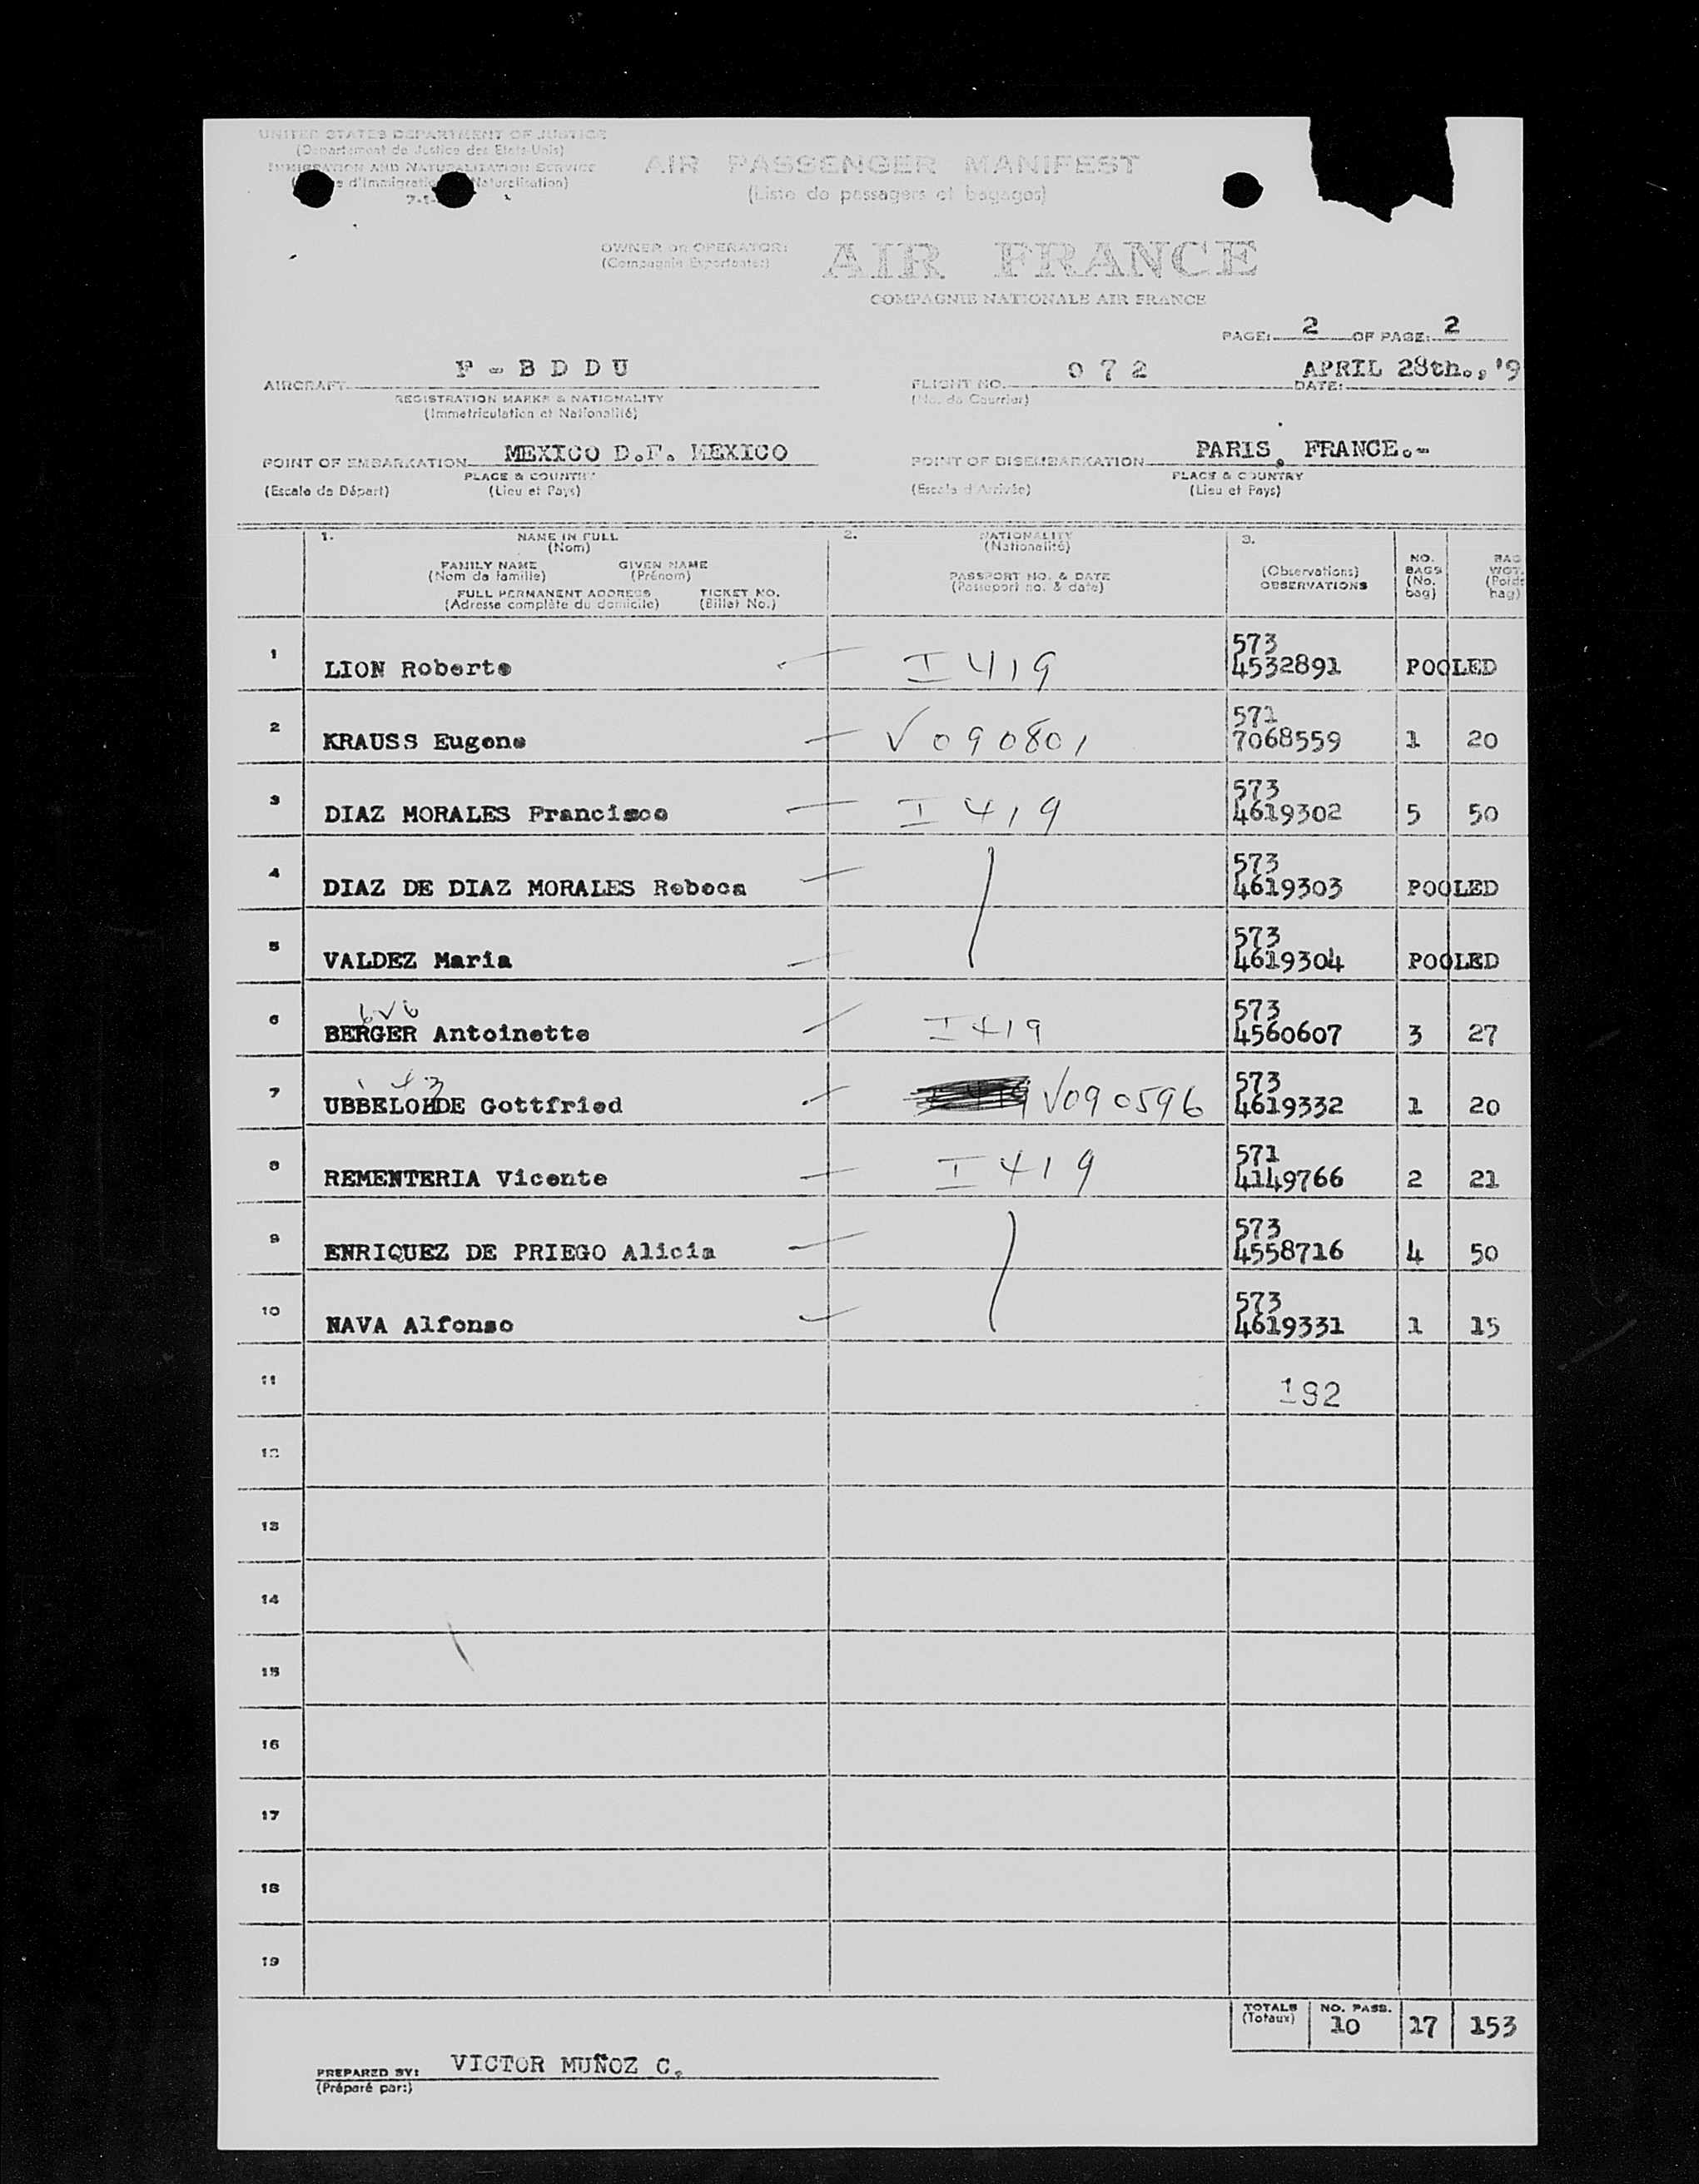 UNITED STATES DEPARTMENT OF JUSTICE
(Departement de Justice des Etats-Unis)
IMMIGRATION AND NATURALIZATION SERVICE
d'Immigration Naturalisation)
AIR PASSENGER MANIFEST
(Liste de passagers et bagages)
OWNER OR OPERATOR: AIR FRANCE
(Compagnie Exportante:)
COMPAGNIE NATIONALE AIR FRANCE
PAGE: 2 OF PAGE: 2
AIRCRAFT F - B D D U FLIGHT NO. 0 7 2 DATE: APRIL 28th., '9
REGISTRATION MARKS & NATIONALITY (No. du Courrier)
(Immatriculation et Nationalité)
POINT OF EMBARKATION MEXICO D.F. MEXICO POINT OF DISEMBARKATION PARIS, FRANCE.-
PLACE & COUNTRY PLACE & COUNTRY
(Escale de Départ) (Lieu et Pays) (Escale d'Arrivée) (Lieu et Pays)
1. NAME IN FULL 2. NATIONALITY 3.
(Nom) (Nationalité)
FAMILY NAME GIVEN NAME NO. BAG
(Nom de famille) (Prénom) PASSPORT NO. & DATE (Observations) BAGS WGT.
FULL PERMANENT ADDRESS TICKET NO. (Passeport no. & date) OBSERVATIONS (No. (Poids
(Adresse complète du domicile) (Billet No.) bag) bag)
573
1 LION Roberto I 419 4532891 POOLED
571
2 KRAUSS Eugene V 090801 7068559 1 20
573
3 DIAZ MORALES Francisco I 419 4619302 5 50
573
4 DIAZ DE DIAZ MORALES Rebeca 4619303 POOLED
573
5 VALDEZ Maria 4619304 POOLED
573
6 BERGER Antoinette I 419 4560607 3 27
573
7 UBBELOHDE Gottfried V090596 4619332 1 20
571
8 REMENTERIA Vicente I 419 4149766 2 21
573
9 ENRIQUEZ DE PRIEGO Alicia 4558716 4 50
573
10 NAVA Alfonso 4619331 1 15
11 192
12
13
14
15
16
17
18
19
TOTALS NO. PASS.
(Totaux) 10 17 153
PREPARED BY: VICTOR MUÑOZ C.
(Préparé par:)